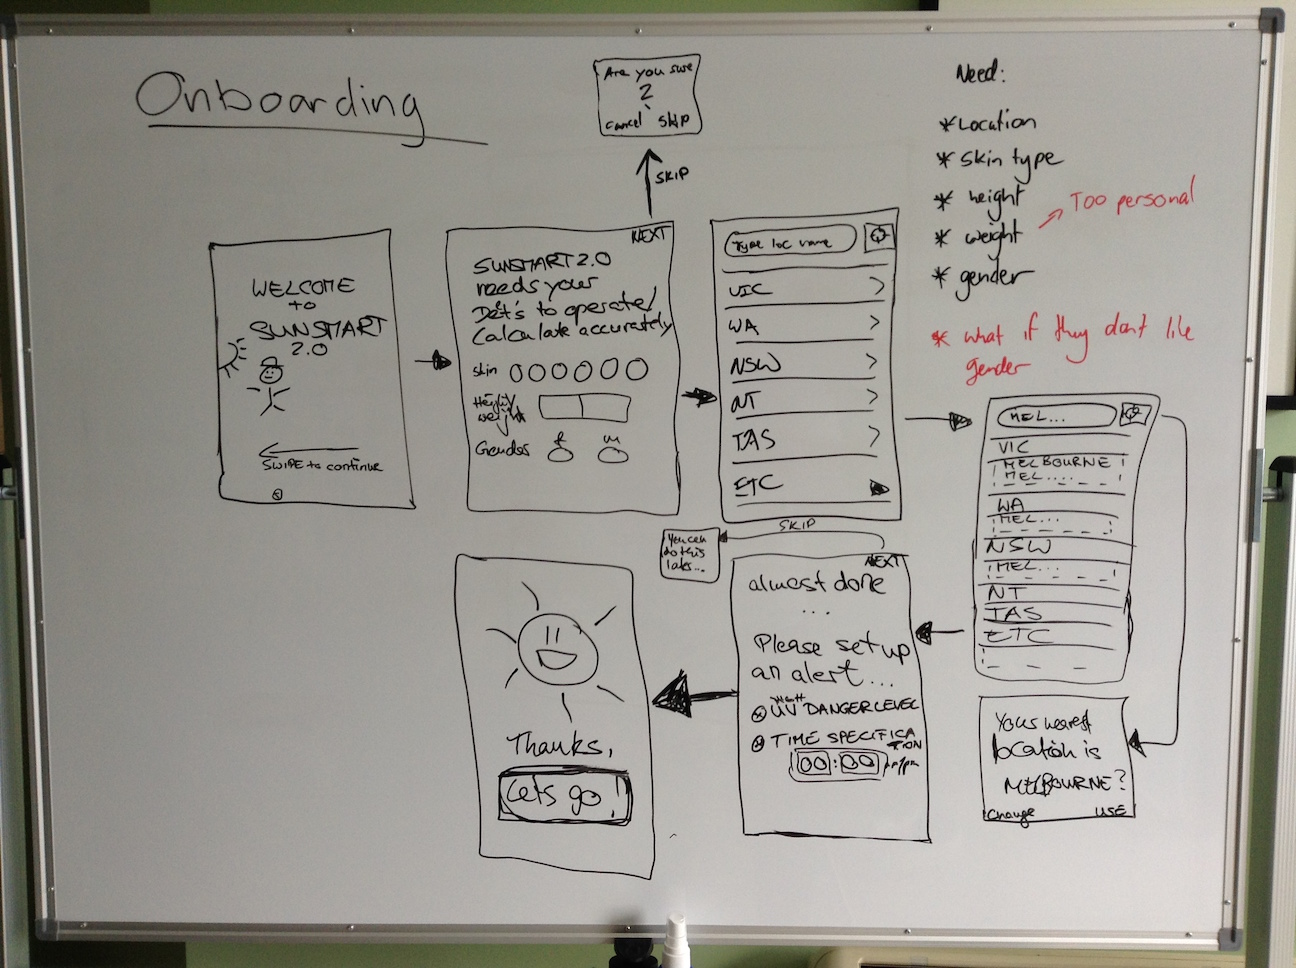 Onboarding
Are you sure
?
cancel skip
SKIP
WELCOME
to
SUNSMART
2.0
SWIPE to continue
NEXT
SUNSMART 2.0
needs your
Det's to operate/
Calculate accurately
skin
Height/
weight
Gender f m
Type loc name
VIC
WA
NSW
NT
TAS
ETC
Need:
* Location
* skin type
* height
* weight
Too personal
* gender
* what if they dont like
gender
MEL...
VIC
MELBOURNE
MEL....
WA
MEL...
NSW
MEL...
NT
TAS
ETC
Your nearest
location is
MELBOURNE?
Change USE
SKIP
You can
do this
later...
NEXT
almost done
...
Please set up
an alert...
UV DANGER LEVEL
TIME SPECIFICA
TION
00:00 am/pm
Thanks,
Lets go!